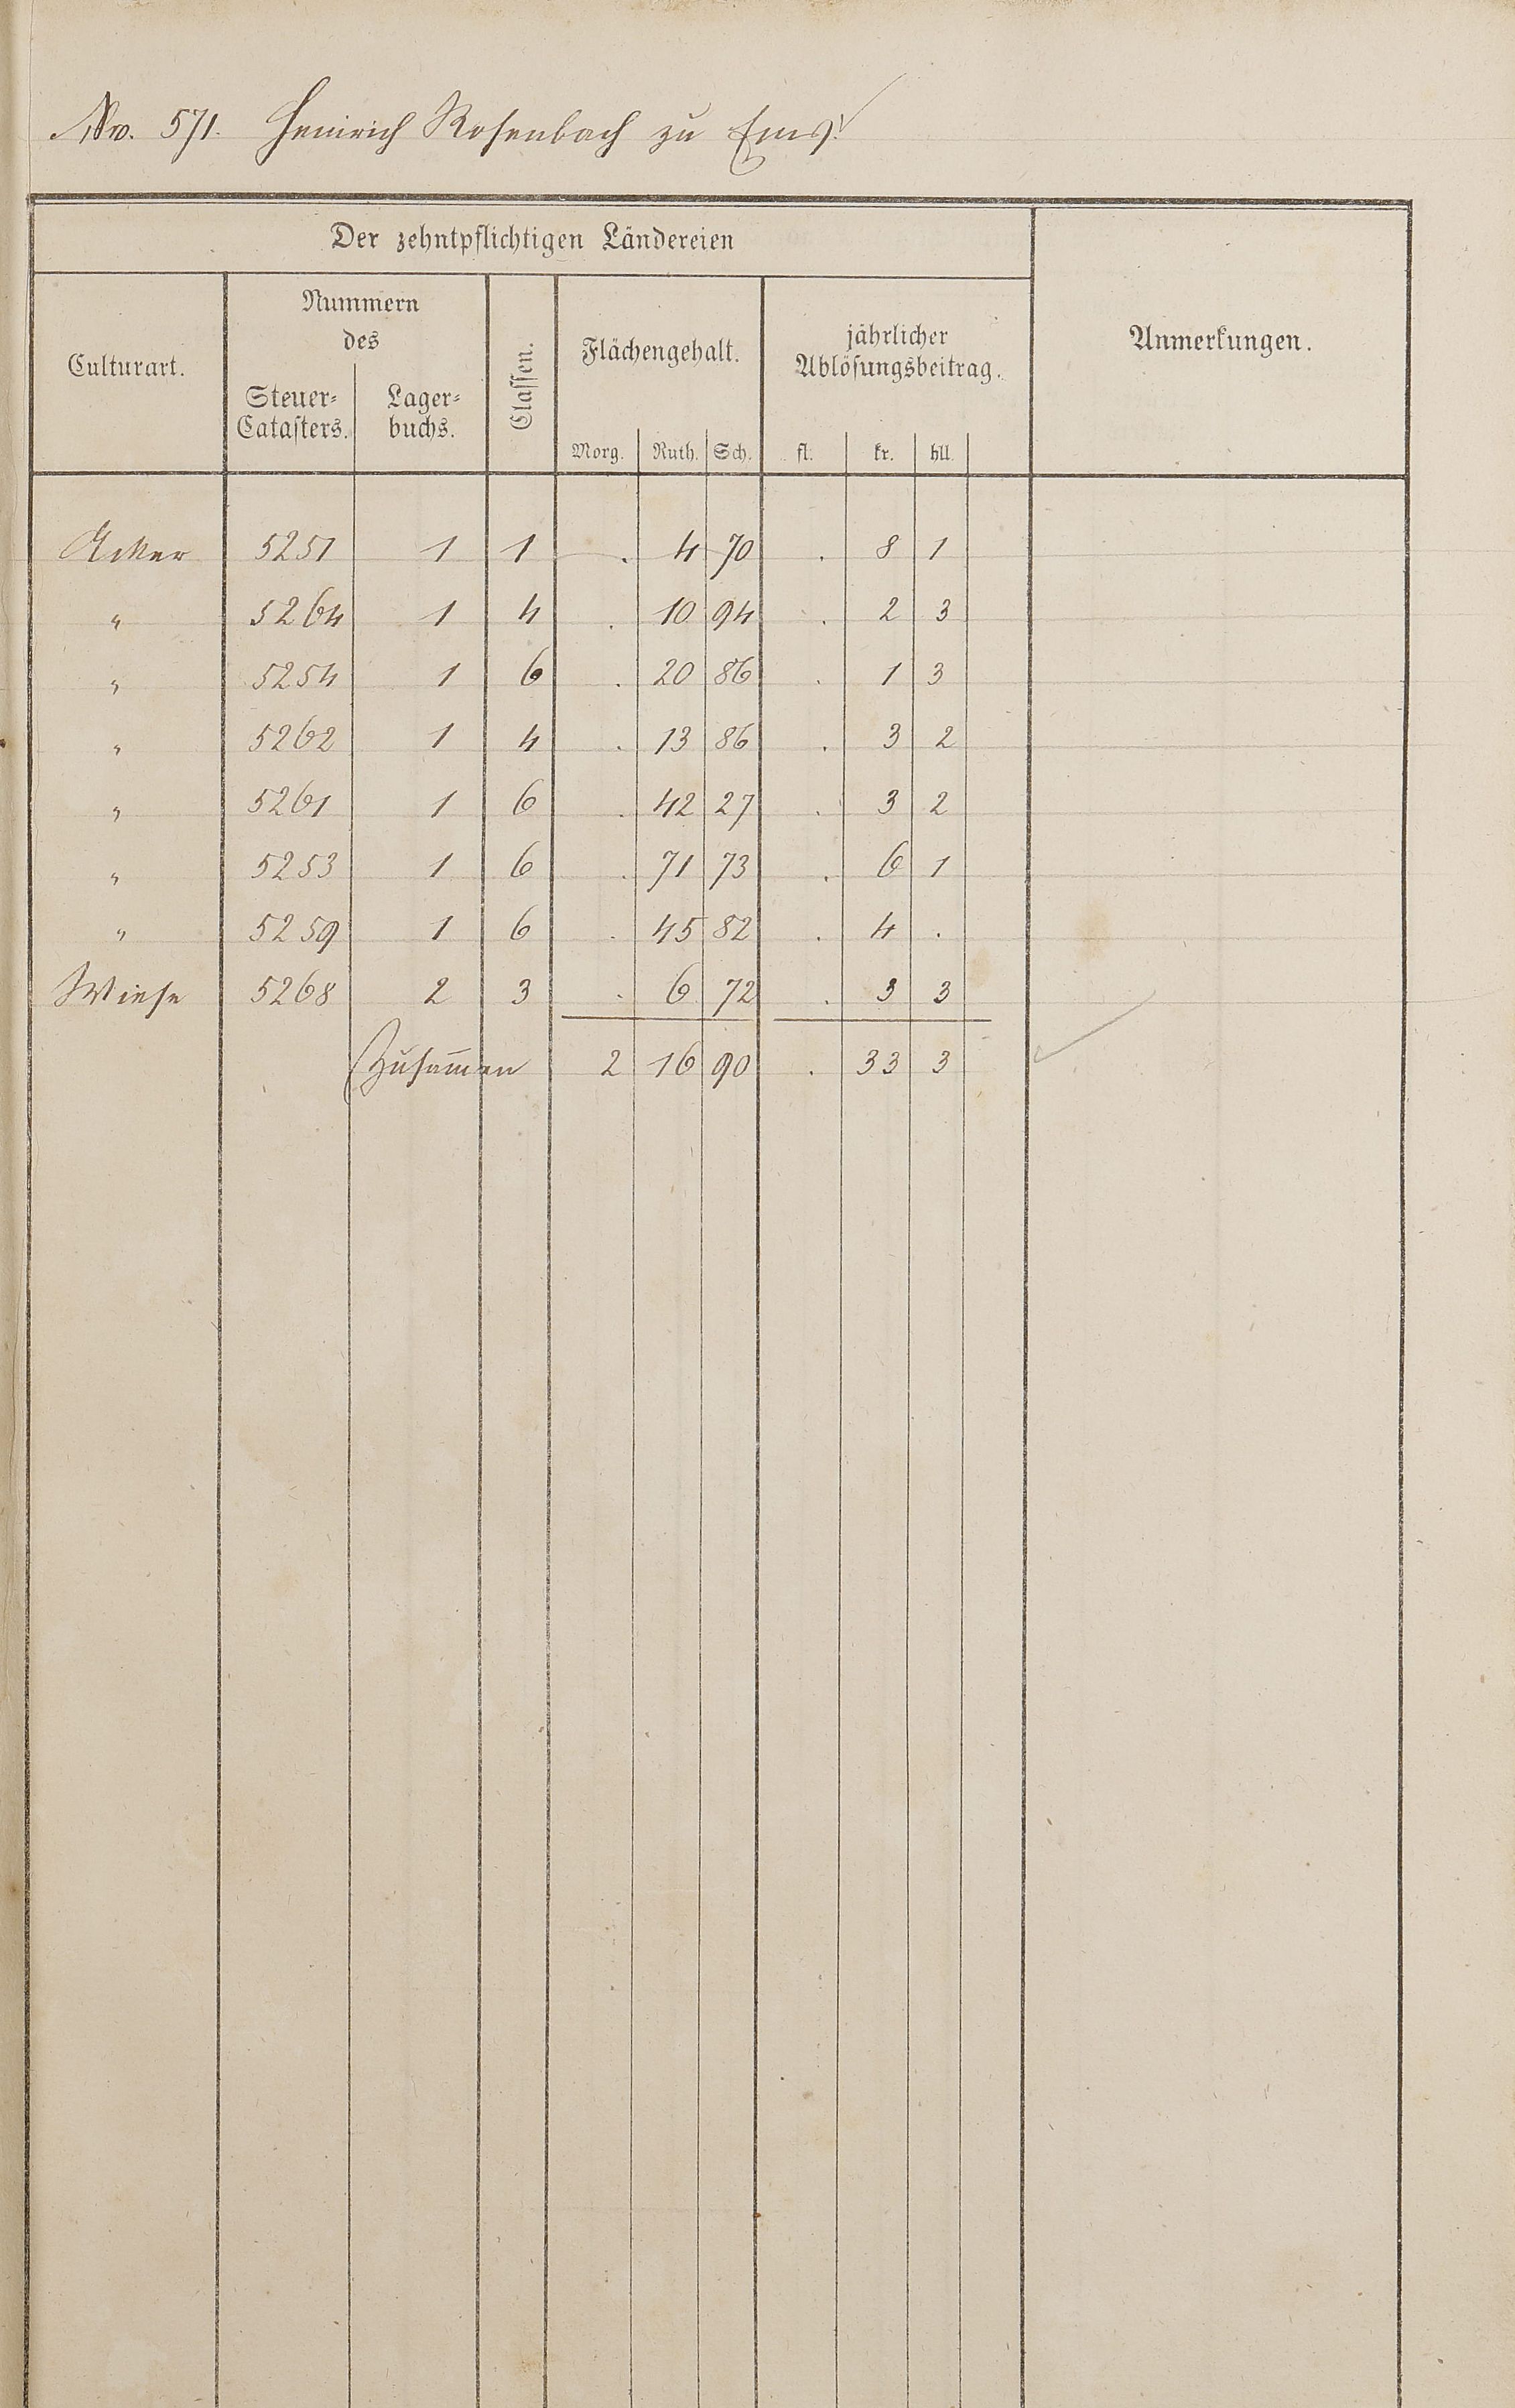 No. 571. Heinrich Rosenbach zu Ems.
Der zehntpflichtigen Ländereien
Culturart.
Nummern
des
Steuer-
Catasters.
Lager-
buchs.
Classen.
Flächengehalt.
Morg. Ruth. Sch.
jährlicher
Ablösungsbeitrag.
fl. kr. hll.
Anmerkungen.
Acker 5251 1 1 . 4 70 . 8 1
" 5264 1 4 . 10 94 . 2 3
" 5254 1 6 . 20 86 . 1 3
" 5262 1 4 . 13 86 . 3 2
" 5261 1 6 . 42 27 . 3 2
" 5253 1 6 . 71 73 . 6 1
" 5259 1 6 . 45 82 . 4 .
Wiese 5268 2 3 . 6 72 . 3 3
Zusammen 2 16 90 . 33 3